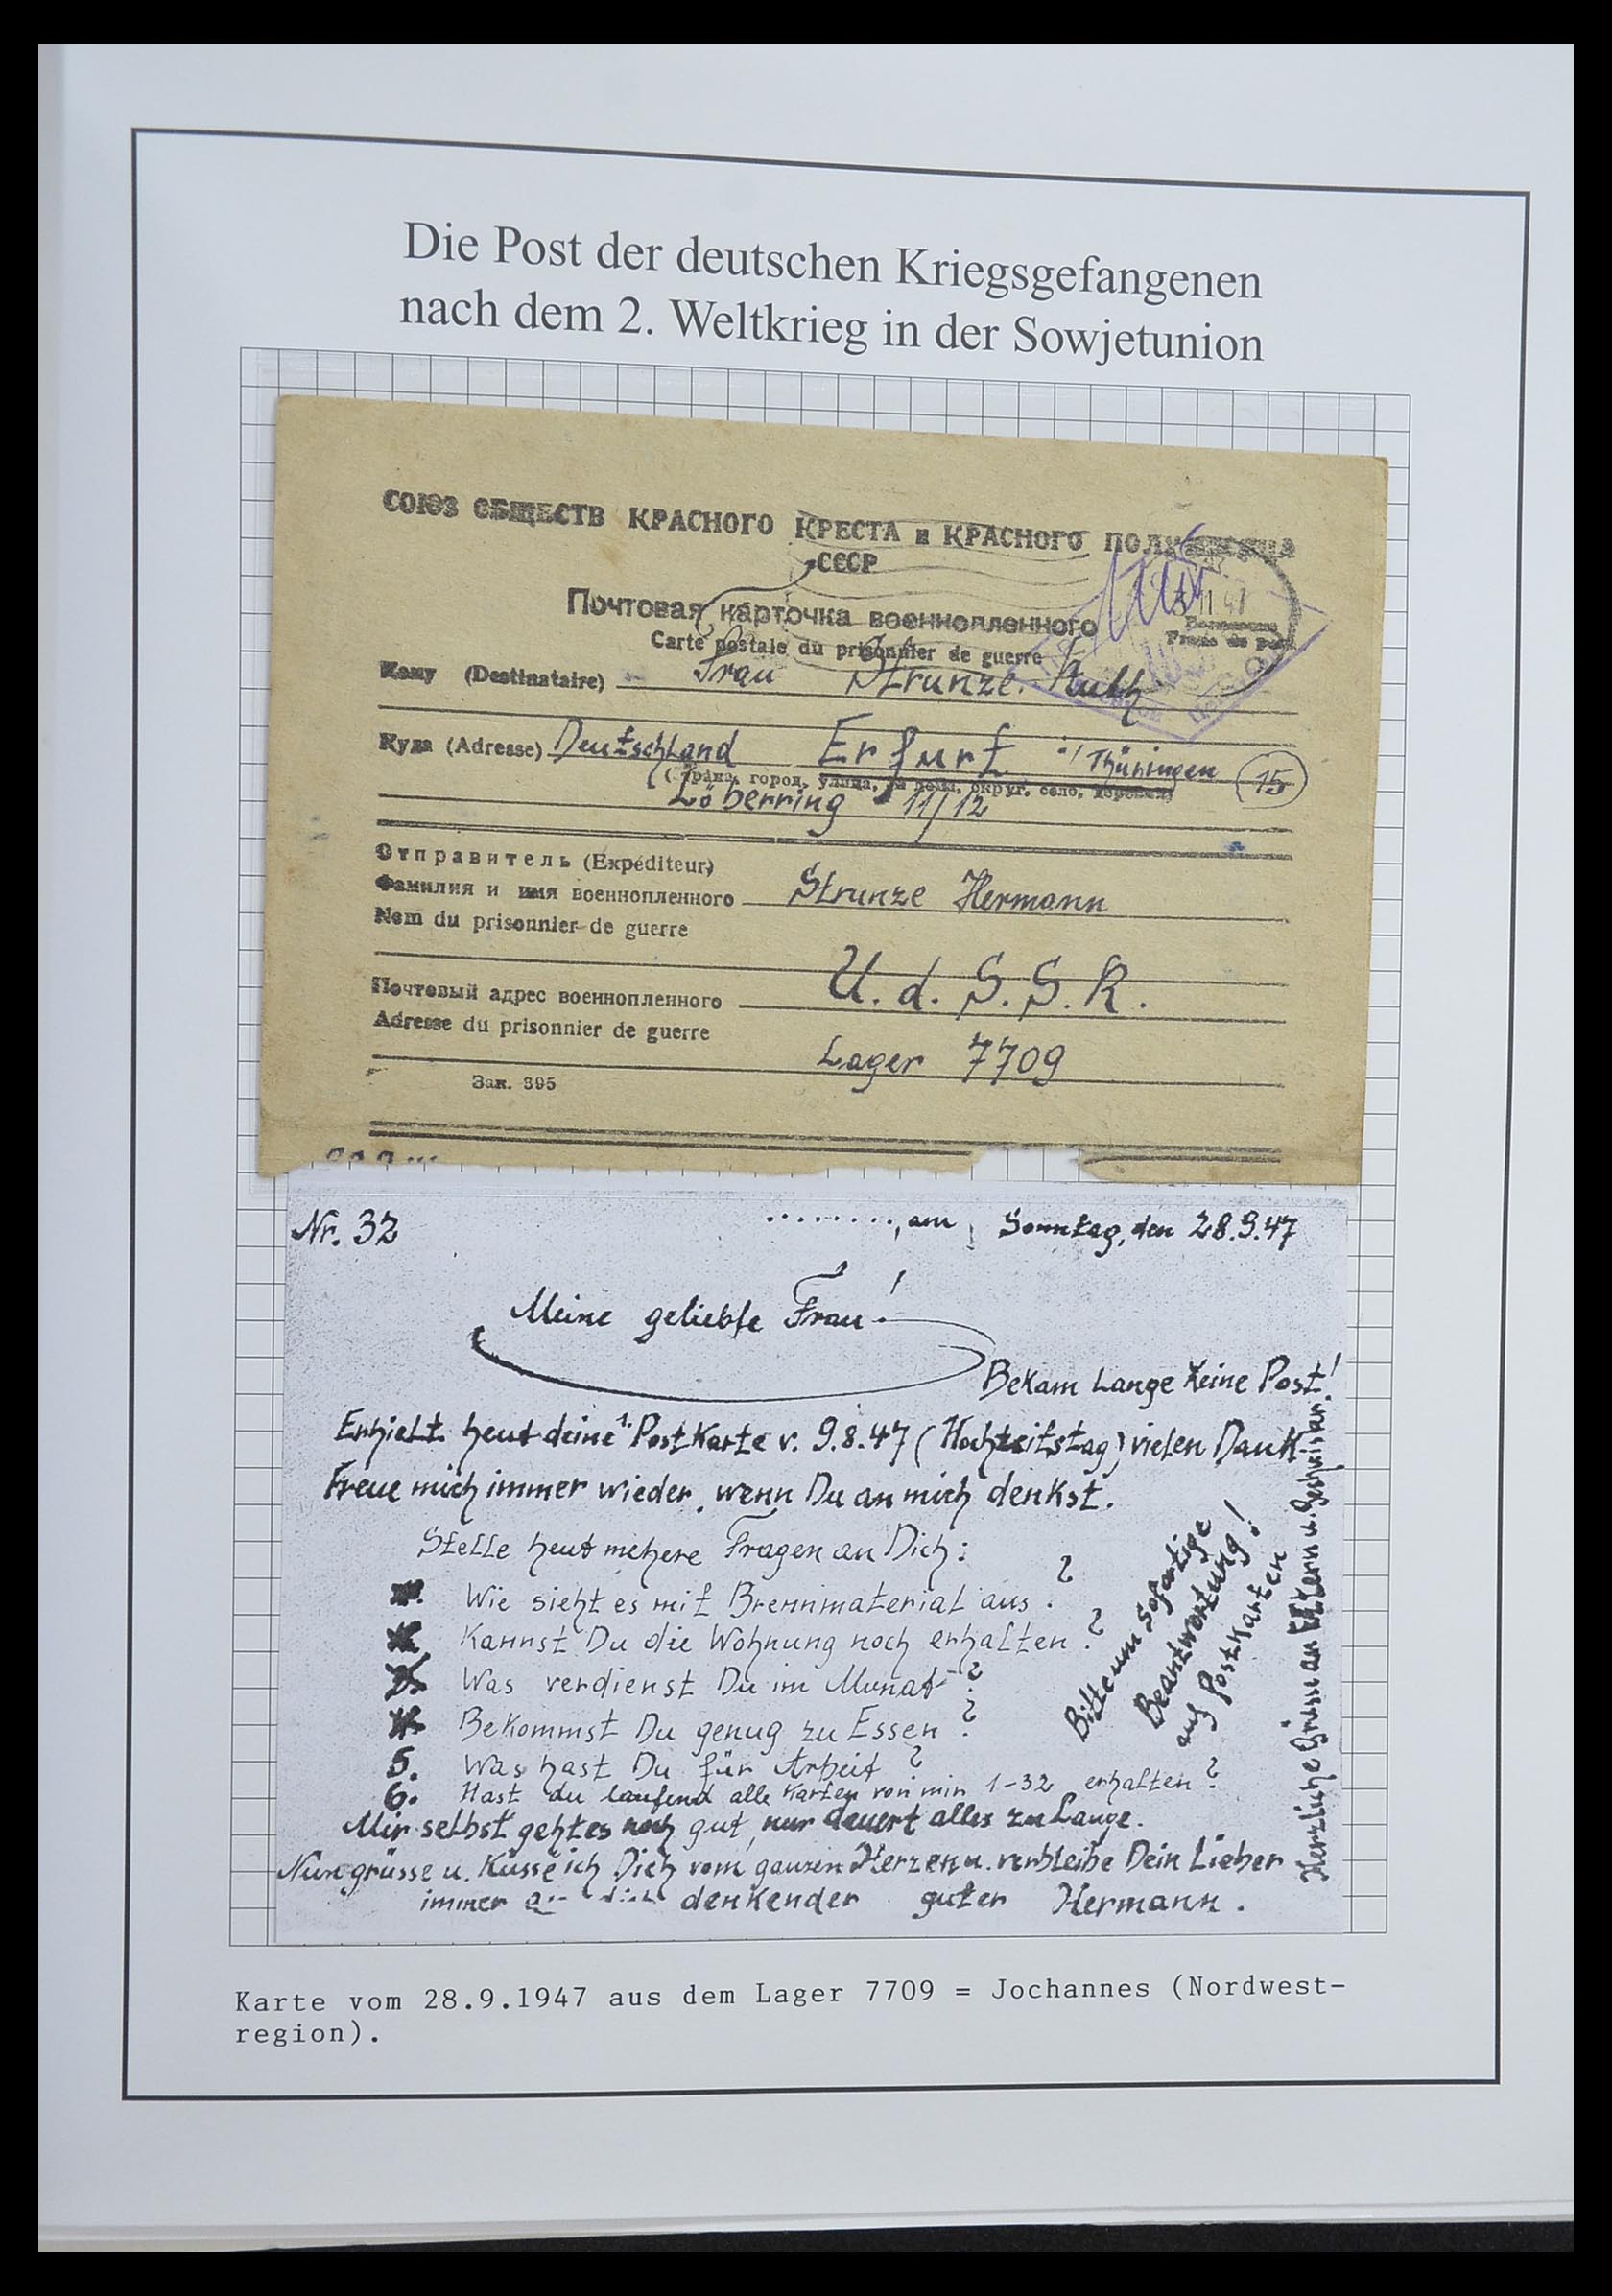 Die Post der deutschen Kriegsgefangenen
nach dem 2. Weltkrieg in der Sowjetunion
СОЮЗ ОБЩЕСТВ КРАСНОГО КРЕСТА и КРАСНОГО ПОЛУМЕСЯЦА
СССР
Почтовая карточка военнопленного
Carte postale du prisonnier de guerre
11 47
Franc de port
Кому (Destinataire) Frau Strunze Ruth
Куда (Adresse) Deutschland Erfurt i/Thüringen 15
(страна, город, улица, № дома, округ, село, деревня)
Löberring 11/12
Отправитель (Expéditeur)
Фамилия и имя военнопленного Strunze Hermann
Nom du prisonnier de guerre
U.d.S.S.R.
Почтовый адрес военнопленного
Adresse du prisonnier de guerre
Lager 7709
Зак. 395
Nr. 32 ........, am Sonntag, den 28.9.47
Meine geliebte Frau!
Bekam Lange keine Post!
Erhielt heut deine 1. Postkarte v. 9.8.47 (Hochzeitstag) vielen Dank
Freue mich immer wieder, wenn Du an mich denkst.
Stelle heut mehere Fragen an Dich:
Wie sieht es mit Brennmaterial aus?
Kannst Du die Wohnung noch erhalten?
Was verdienst Du im Munat?
Bekommst Du genug zu Essen?
5. Was hast Du für Arbeit?
6. Hast du laufend alle Karten von mir 1-32 erhalten?
Mir selbst geht es noch gut, nur dauert alles zu Lange.
Nun grüsse u. Küsse ich Dich vom ganzen Herzen u. verbleibe Dein Lieber
immer an dich denkender guter Hermann.
Bitte um sofortige
Beantwortung!
auf Postkarten
Herzliche Grüsse an Eltern u. Geschwister!
Karte vom 28.9.1947 aus dem Lager 7709 = Jochannes (Nordwest-
region).